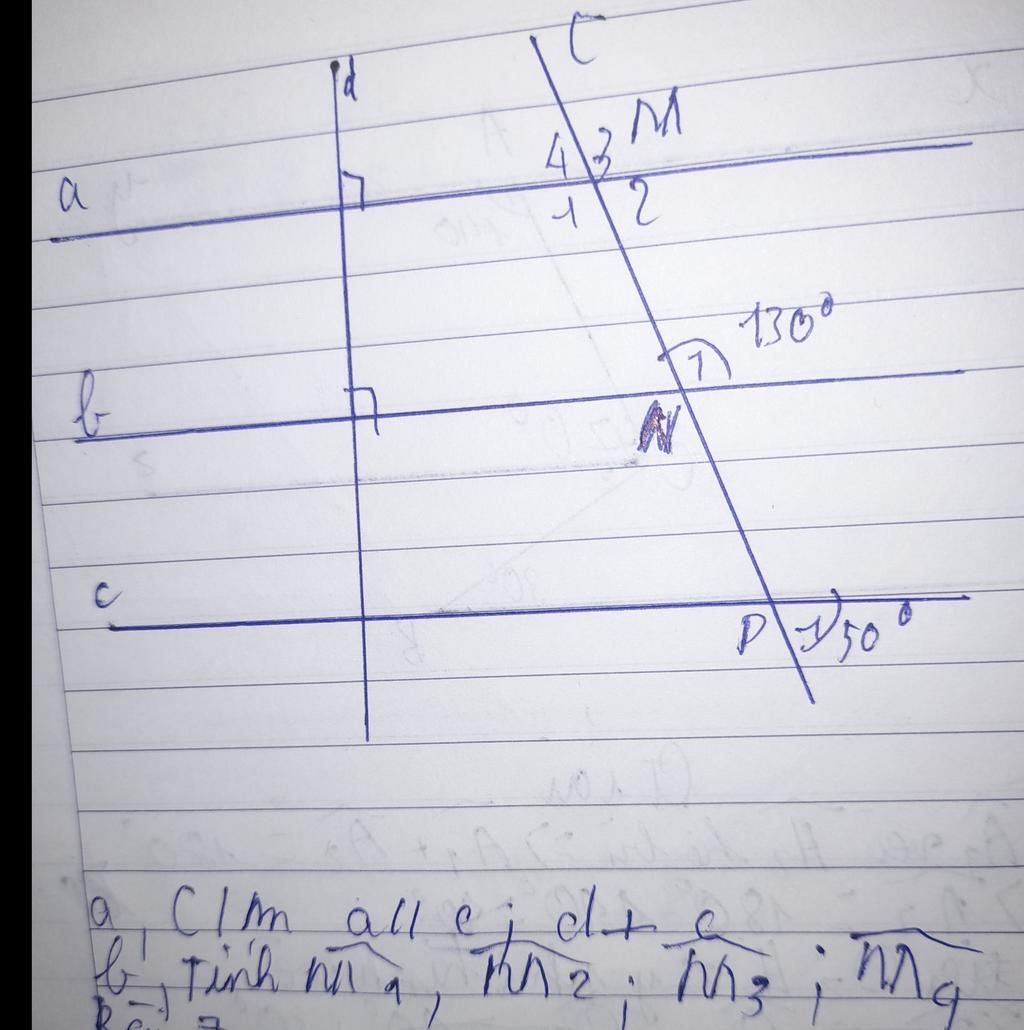 d
C
4 3 M
a
1 2
130°
1
b
N
c
P 1 50°
a, C/m a//c; d⊥c
b, Tính M̂1, M̂2; M̂3; M̂4